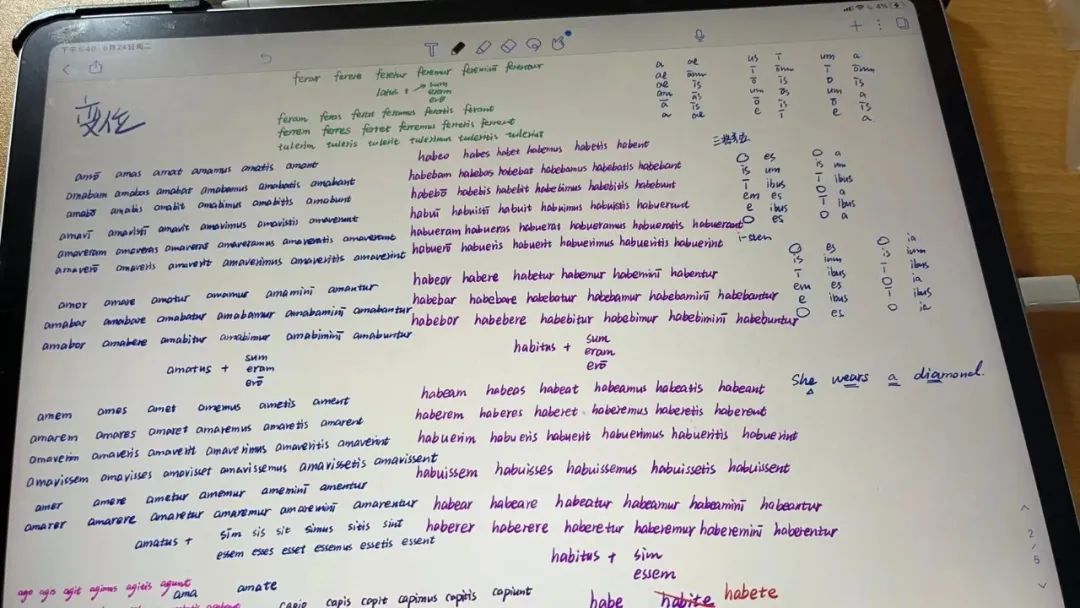 下午6:40 6月24日周二
4%
变位
feror ferere feretur feremur feremini ferentur
latus + sum
eram
erō
feram feres feret feremus feretis ferent
ferrem ferres ferret ferremus ferretis ferrent
tulerim tuleris tulerit tulerimus tuleritis tulerint
amō amas amat amamus amatis amant
amabam amabas amabat amabamus amabatis amabant
amabō amabis amabit amabimus amabitis amabunt
amavī amavistī amavit amavimus amavistis amaverunt
amaveram amaveras amaverat amaveramus amaveratis amaverant
amaverō amaveris amaverit amaverimus amaveritis amaverint
amor amare amatur amamur amaminī amantur
amabar amabare amabatur amabamur amabaminī amabantur
amabor amabere amabitur amabimur amabiminī amabuntur
amatus + sum
eram
erō
amem ames amet amemus ametis ament
amarem amares amaret amaremus amaretis amarent
amaverim amaveris amaverit amaverimus amaveritis amaverint
amavissem amavisses amavisset amavissemus amavissetis amavissent
amer amere ametur amemur ameminī amentur
amarer amarere amaretur amaremur amareminī amarentur
amatus + sim sis sit simus sitis sint
essem esses esset essemus essetis essent
ago agis agit agimus agitis agunt
ama amate
capio capis capit capimus capitis capiunt
habeo habes habet habemus habetis habent
habebam habebas habebat habebamus habebatis habebant
habebō habebis habebit habebimus habebitis habebunt
habuī habuistī habuit habuimus habuistis habuerunt
habueram habueras habueras habueramus habueratis habuerant
habuerō habueris habuerit habuerimus habueritis habuerint
habeor habere habetur habemur habeminī habentur
habebar habebare habebatur habebamur habebaminī habebantur
habebor habebere habebitur habebimur habebiminī habebuntur
habitus + sum
eram
erō
habeam habeas habeat habeamus habeatis habeant
haberem haberes haberet haberemus haberetis haberent
habuerim habueris habuerit habuerimus habueritis habuerint
habuissem habuisses habuissemus habuissetis habuissent
habear habeare habeatur habeamur habeaminī habeartur
haberer haberere haberetur haberemur habereminī haberentur
habitus + sim
essem
habe habite habete
a ae us ī um a
ae ārum ī ōrum ī ōrum
ae īs ō īs ō īs
am ās um ōs um a
ā īs ō īs ō īs
a ae e ī e a
O es O a
is um is um
ī ibus ī ibus
em es O a
e ibus ī ibus
O es O a
i-stem
O es O ia
is ium is ium
ī ibus ī ibus
em es O ia
e ibus ī ibus
O es O ia
She wears a diamond.
2/5